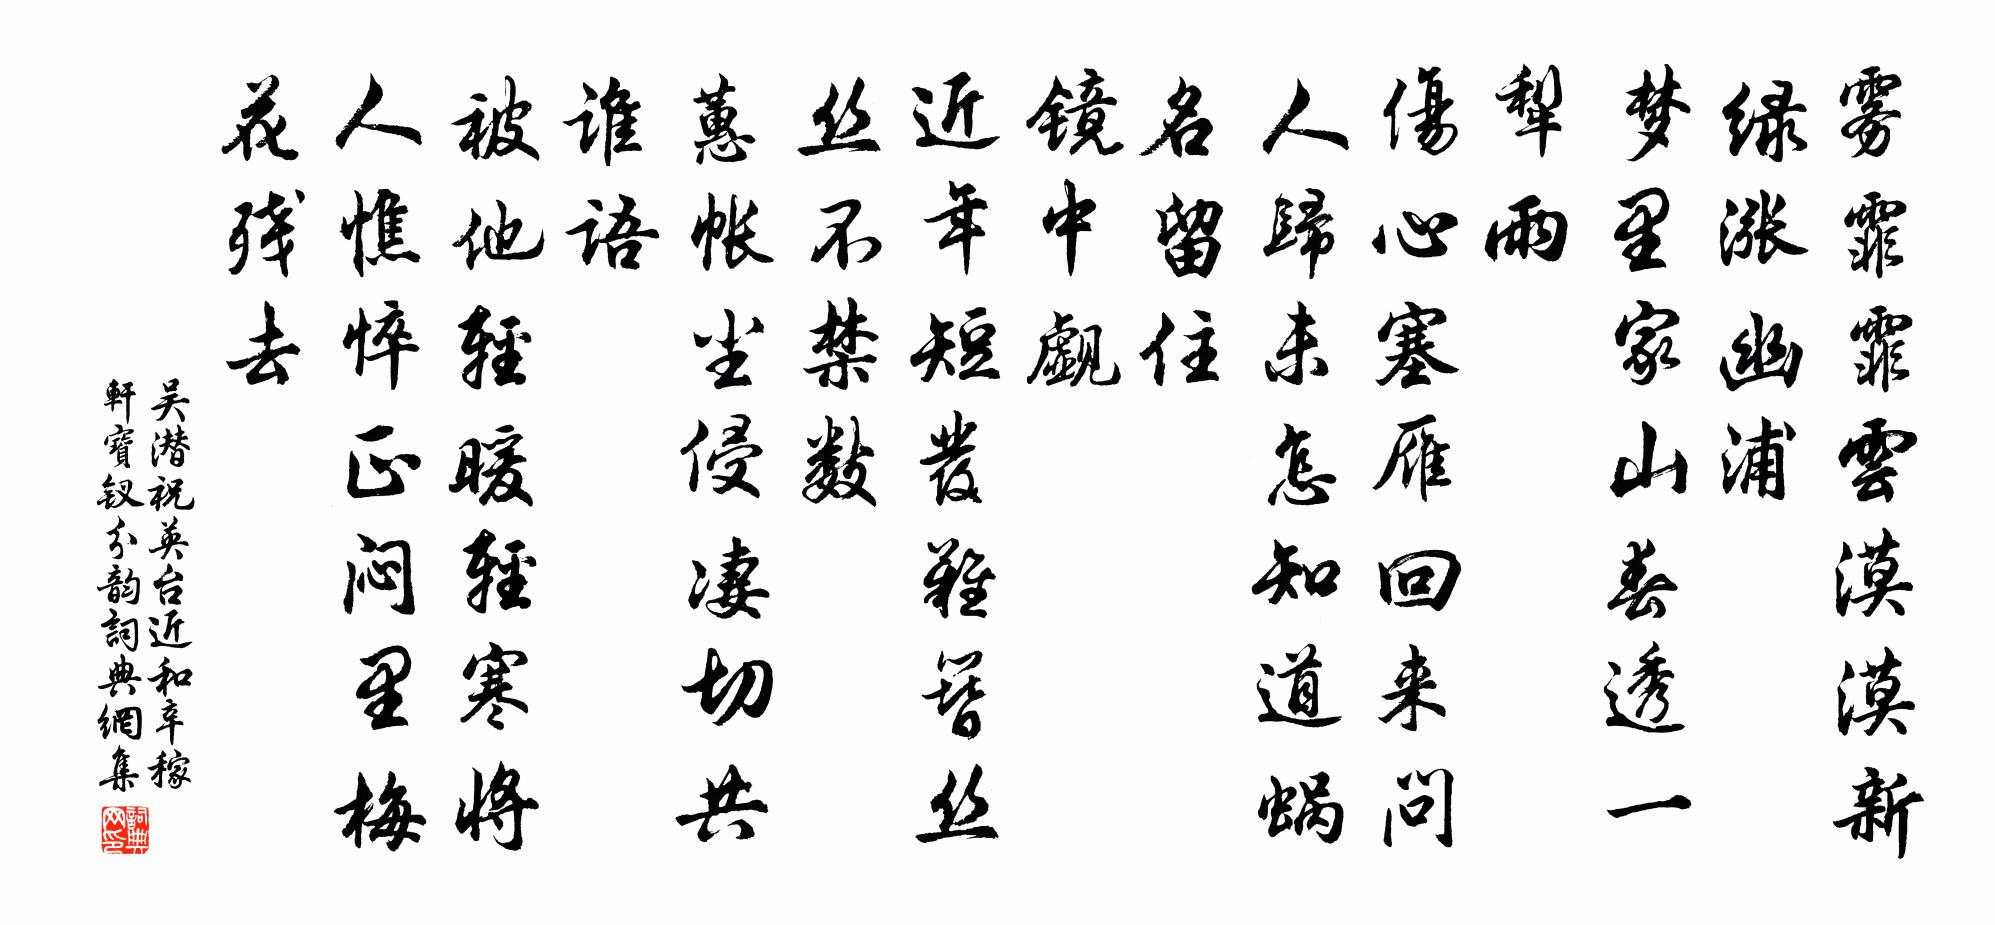 雾霏霏雲漠漠新
绿涨幽浦
梦里家山春透一
犁雨
傷心塞雁回来问
人歸未怎知道蜗
名留住
镜中觑
近年短发難簪丝
丝不禁数
蕙帐尘侵凄切共
谁语
被他輕暖輕寒将
人憔悴正闷里梅
花残去
吴潜祝英台近和辛稼
軒寶钗分韵詞典網集
詞典
网印